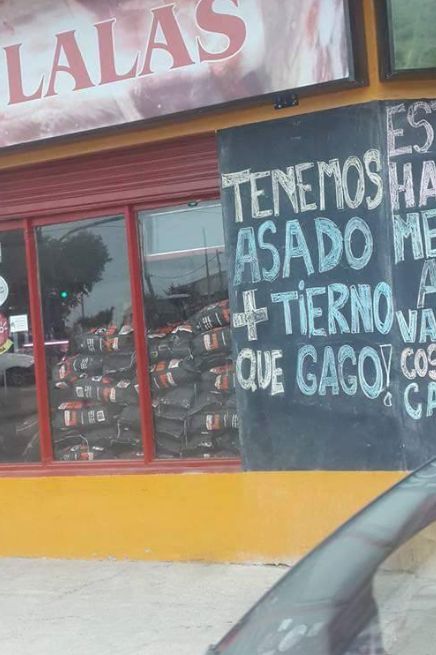 LALAS
TENEMOS
ASADO
+ TIERNO
QUE GAGO!
ES
HA
ME
A
VA
COS
CA